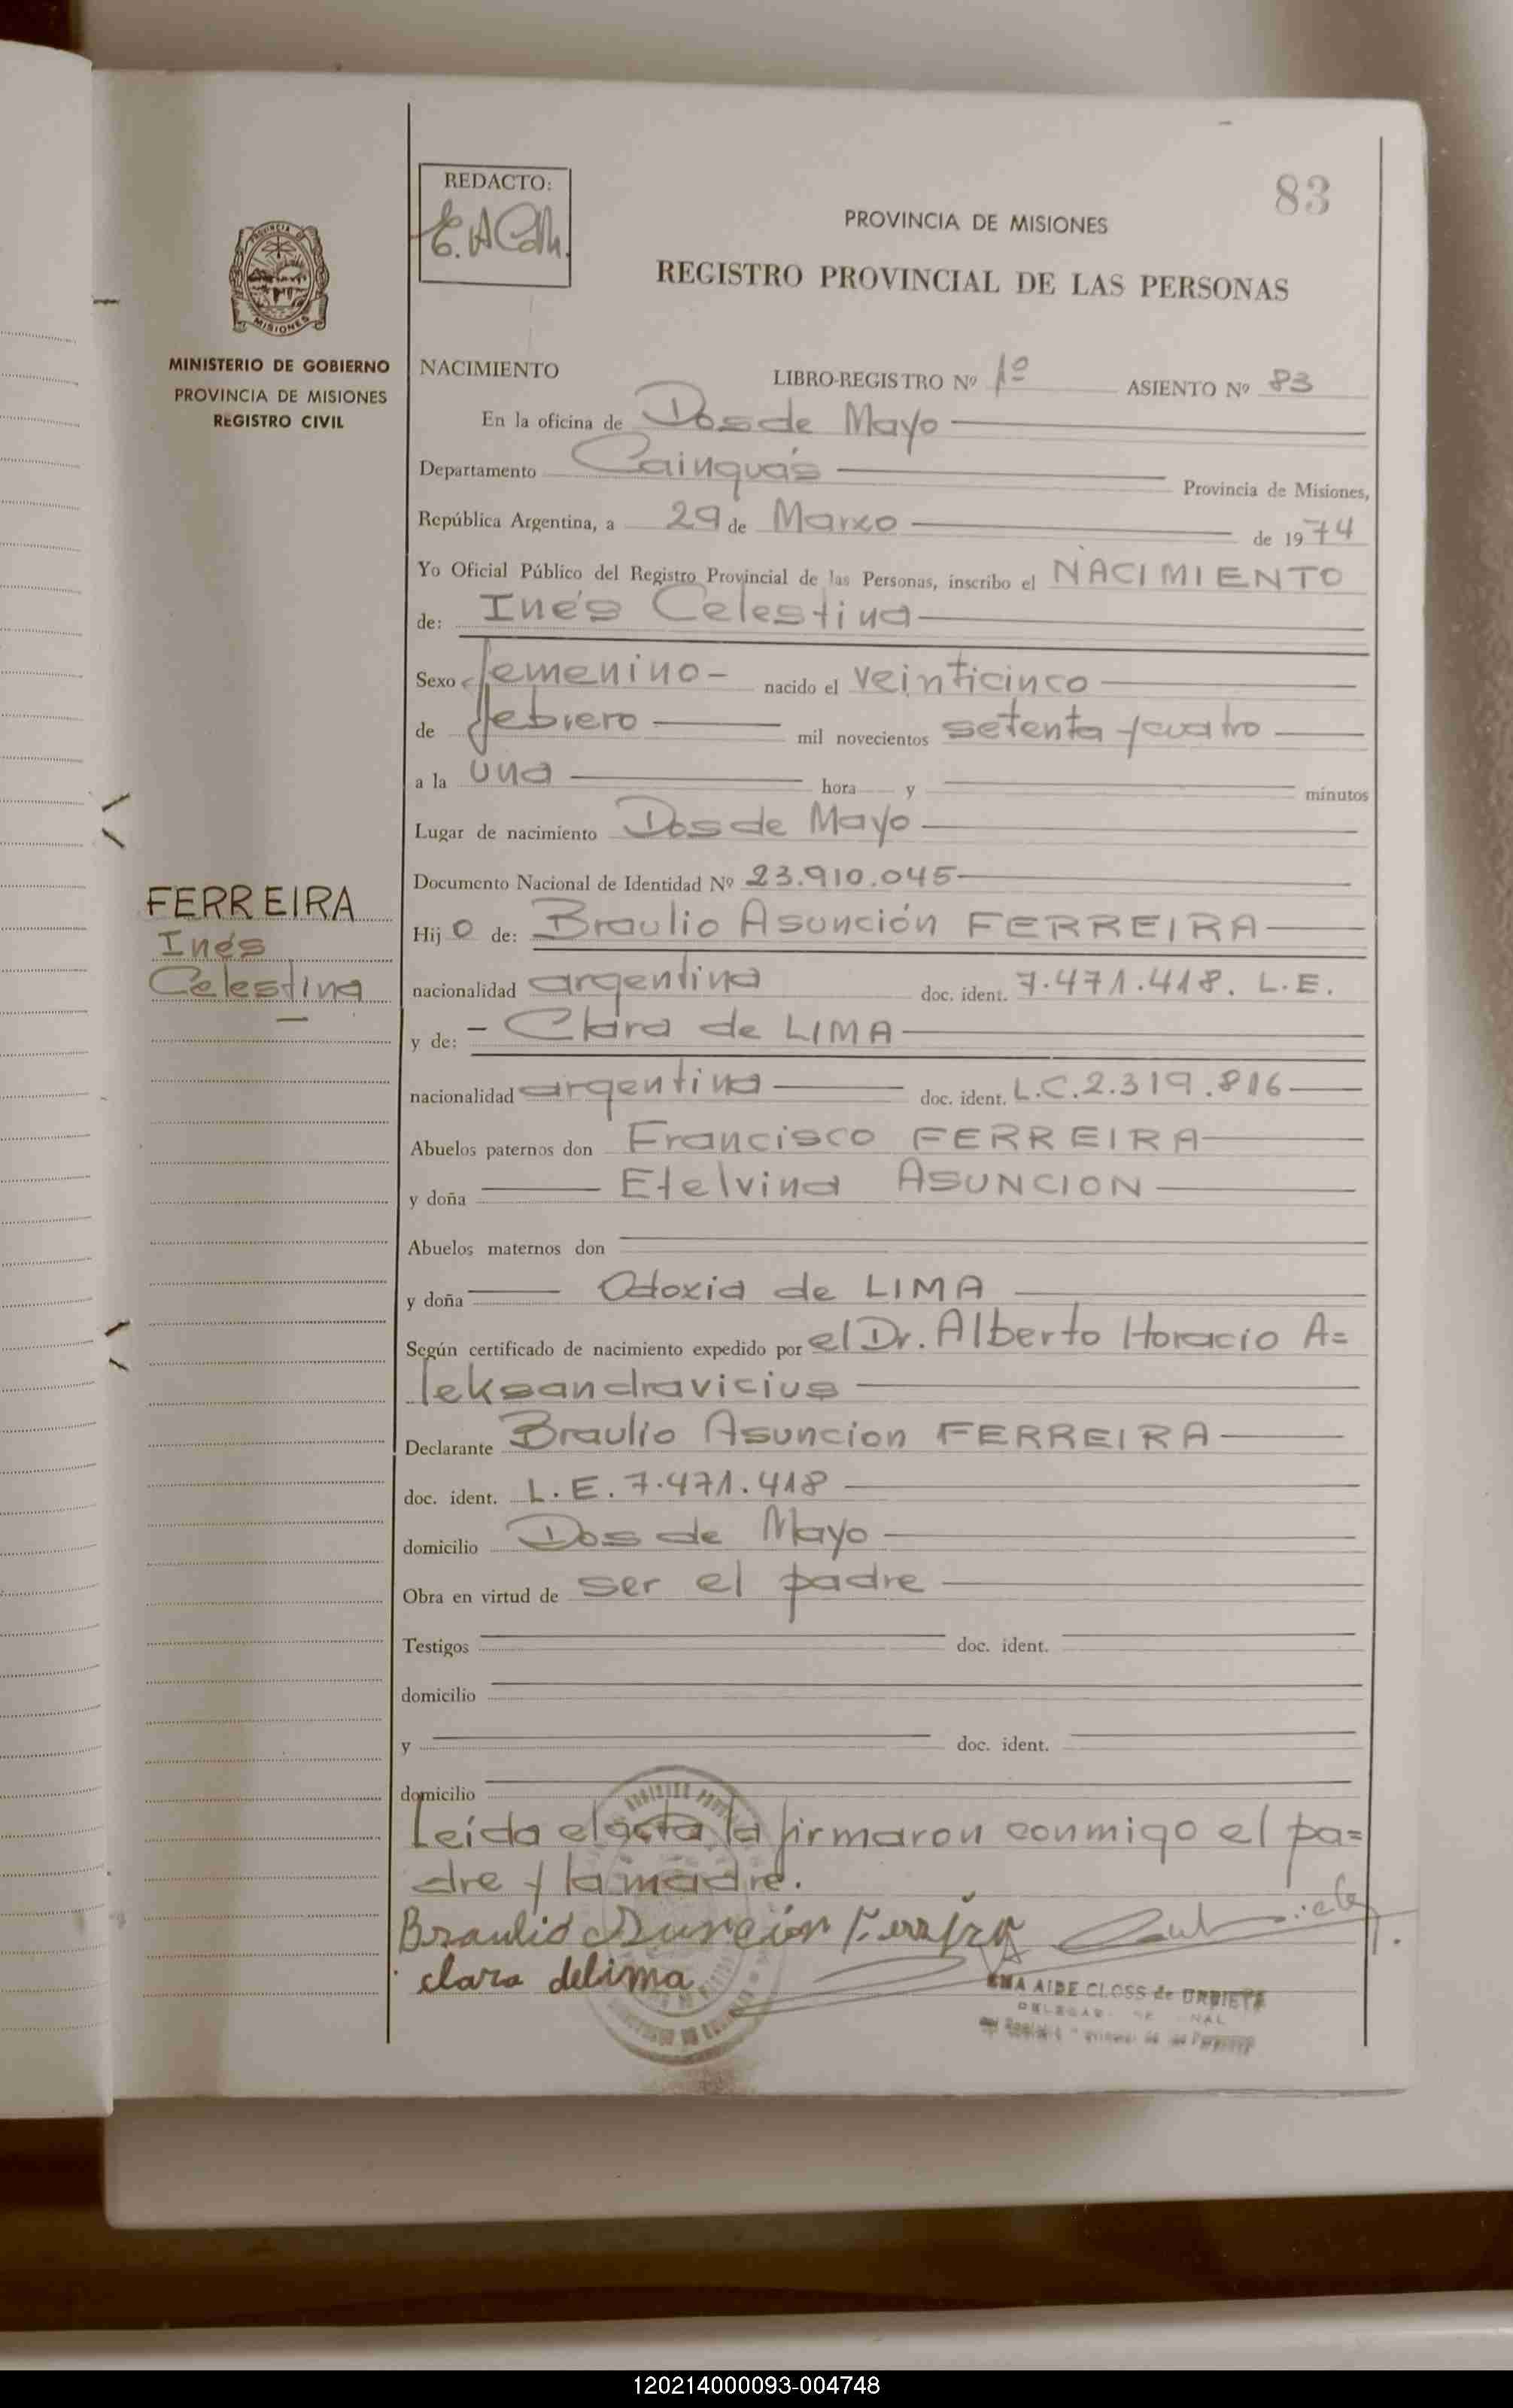 83
REDACTO:
PROVINCIA DE MISIONES
REGISTRO PROVINCIAL DE LAS PERSONAS
MINISTERIO DE GOBIERNO
PROVINCIA DE MISIONES
REGISTRO CIVIL
NACIMIENTO LIBRO-REGISTRO Nº 1º ASIENTO Nº 83
En la oficina de Dos de Mayo
Departamento Cainguás Provincia de Misiones,
República Argentina, a 29 de Marzo de 1974
Yo Oficial Público del Registro Provincial de las Personas, inscribo el NACIMIENTO
de: Inés Celestina
Sexo femenino- nacido el veinticinco
de febrero mil novecientos setenta y cuatro
a la una hora y minutos
Lugar de nacimiento Dos de Mayo
Documento Nacional de Identidad Nº 23.910.045
FERREIRA
Inés
Celestina
Hijo de: Braulio Asunción FERREIRA
nacionalidad argentina doc. ident. 7.471.418. L.E.
y de: - Clara de LIMA
nacionalidad argentina doc. ident. L.C.2.319.816
Abuelos paternos don Francisco FERREIRA
y doña Etelvina ASUNCION
Abuelos maternos don
y doña Odoxia de LIMA
Según certificado de nacimiento expedido por el Dr. Alberto Horacio A=
leksandravicius
Declarante Braulio Asuncion FERREIRA
doc. ident. L.E. 7.471.418
domicilio Dos de Mayo
Obra en virtud de ser el padre
Testigos doc. ident.
domicilio
y doc. ident.
domicilio
Leída el acta la firmaron conmigo el pa=
dre y la madre.
Braulio Asunción Ferreira
clara delima
AIDE CLOSS de URRIETA
120214000093-004748